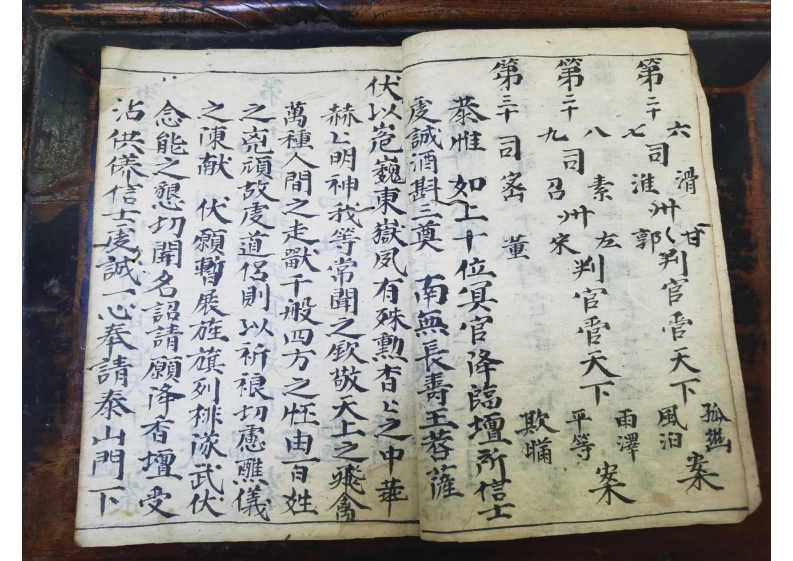 第二十六司滑州甘判官霅天下孤㷀案
七淮郭風泊
第二十八司素州左判官霅天下雨澤案
九召宋平等
第三十司密董欺瞞
恭惟如上十位冥官降臨壇所信士
虔誠酒斟三奠南無長壽王菩薩
伏以危巍東嶽夙有殊勲杳〻之中華
赫〻明神我等常聞之欽敬天上之飛禽
萬種人間之走獸千般四方之怪由百姓
之頑故虔道侶則以祈禳切慮醮儀
之陳献伏願暫展旌旗列排隊武伏
念能之懇切聞名詔請願降香壇受
沾供儀信士虔誠一心奉請泰山門下